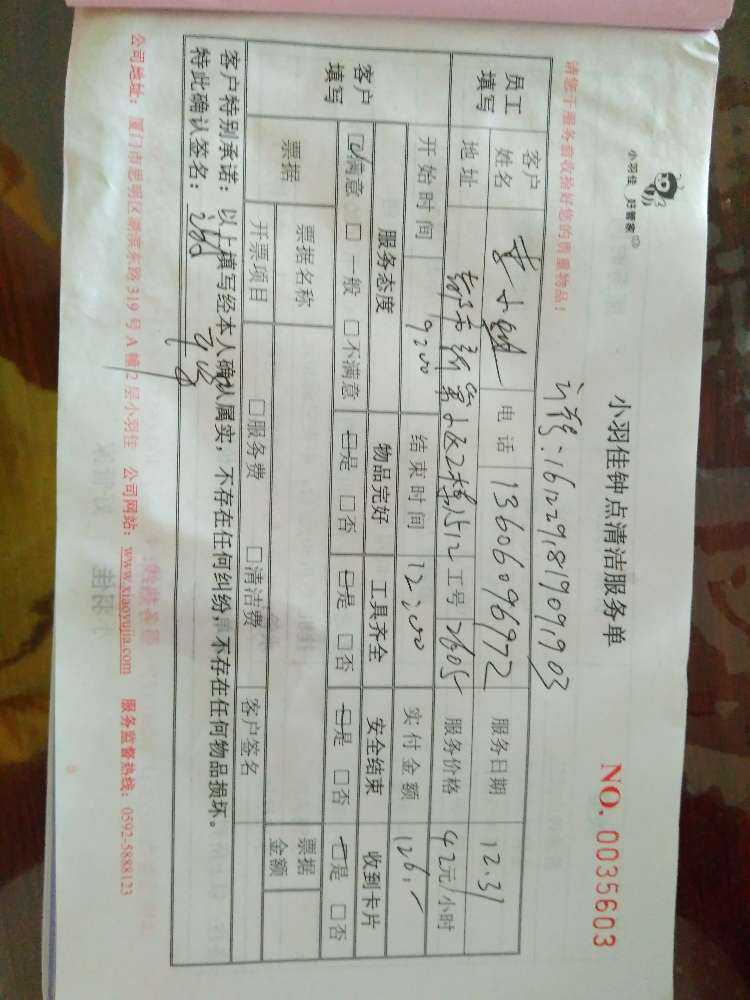 小羽佳 好管家
小羽佳钟点清洁服务单
NO. 0035603
请您于服务前收拾好您的贵重物品！
订单：161229181909903
员工填写 客户姓名 电话 13606096972 服务日期 12.31
地址 小区2楼 512 工号 2605 服务价格 42元/小时
开始时间 9:00 结束时间 12:00 实付金额 126.-
客户填写 服务态度 物品完好 工具齐全 安全结束 收到卡片
☑满意 □一般 □不满意 ☑是 □否 ☑是 □否 ☑是 □否 ☑是 □否
票据 票据名称 客户签名 票据金额
开票项目 □服务费 □清洁费
客户特别承诺：以上填写经本人确认属实，不存在任何纠纷，不存在任何物品损坏。
特此确认签名：
公司地址：厦门市思明区湖滨东路319号A幢2层小羽佳 公司网站：www.xiaoyujia.com 服务监督热线：0592-5888123